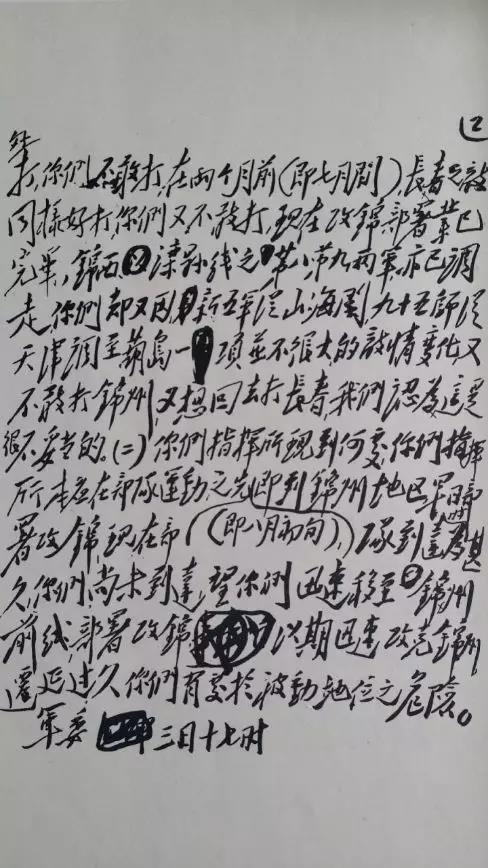 2
然
打,你们不敢打,在两个月前(即七月間),長春之敵
同様好打,你們又不敢打,現在攻錦部署業已
完畢,錦西灤縣线之第八第九兩軍亦已調
走,你們却又因新五軍從山海関九十五師從
天津調至葫島一項並不很大的敵情变化又
不敢打錦州,又想回去打長春,我們認為這是
很不妥当的。(二)你們指揮所現到何處,你們指揮
所本应在部隊運動之先即到錦州地区早日部
署攻錦現在部(即八月初旬),隊到達為甚
久,你們尚未到達,望你們迅速移至錦州
前线,部署攻錦以期迅速攻克錦州
遷延过久你們有處於被動地位之危險。
軍委 三日十七时